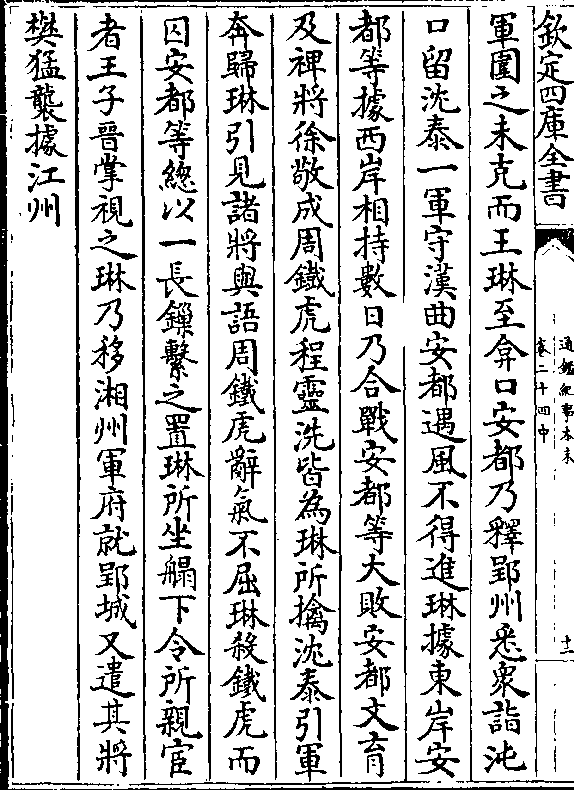 欽定四庫全書
通鑑紀事本末
卷二十四中
十二
軍圍之未克而王琳至弇口安都乃釋郢州悉衆詣沌
口留沈泰一軍守漢曲安都遇風不得進琳據東岸安
都等據西岸相持數日乃合戰安都等大敗安都文育
及裨將徐敬成周鐵虎程靈洗皆為琳所擒沈泰引軍
奔歸琳引見諸將與語周鐵虎辭氣不屈琳殺鐵虎而
囚安都等總以一長鏁繫之置琳所坐𦪙下令所親宦
者王子晉掌視之琳乃移湘州軍府就郢城又遣其將
樊猛襲據江州